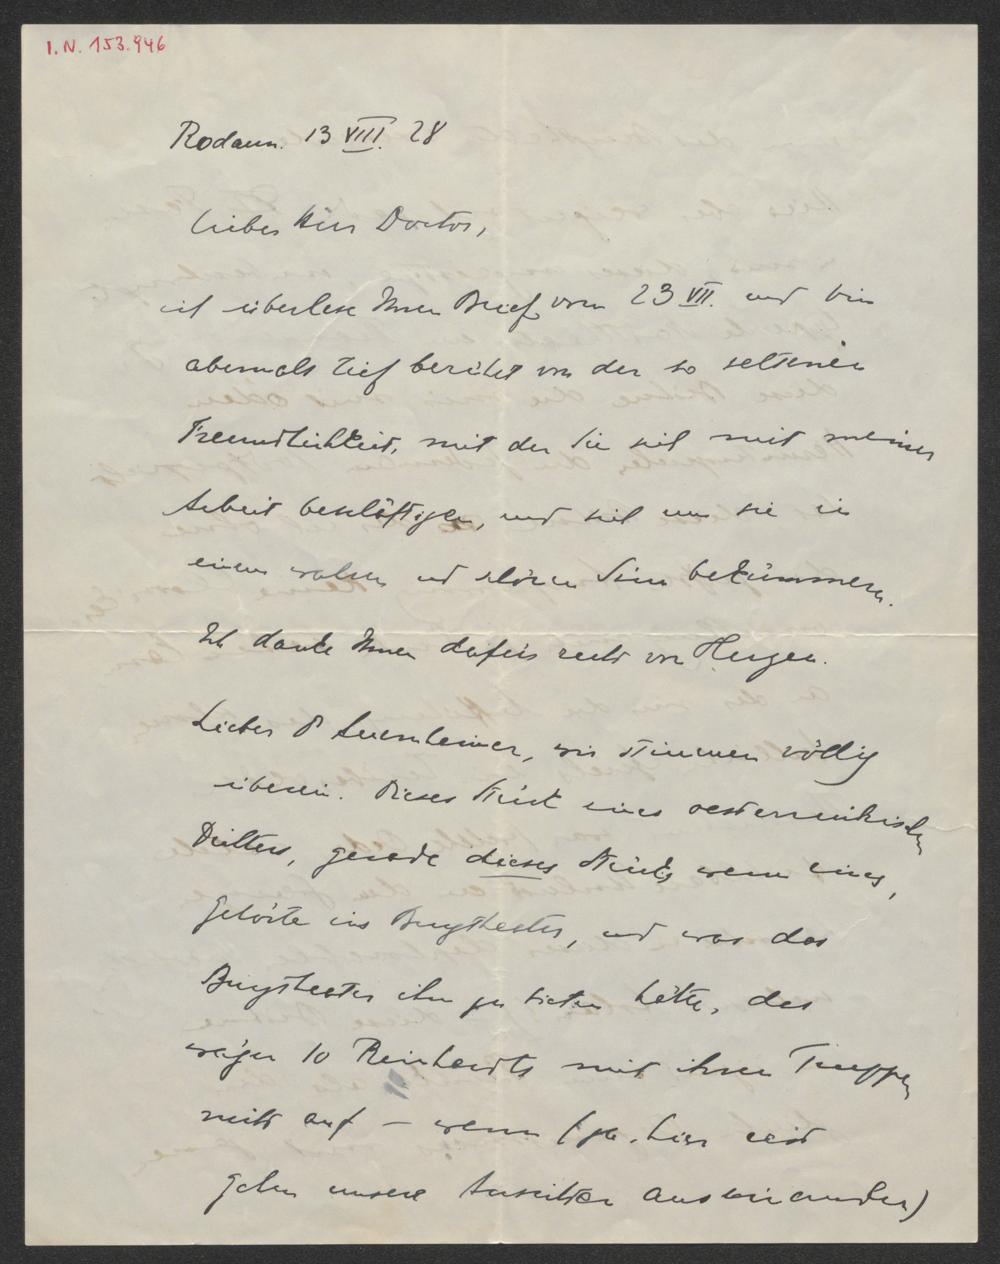 I.N. 153.946
Rodaun. 13 VIII. 28
Lieber Herr Doctor,
ich überlese Ihren Brief vom 23 VII. und bin
abermals tief berührt von der so seltenen
Freundlichkeit, mit der Sie sich mit meiner
Arbeit beschäftigen, und sich um sie in
einem wahren und schönen Sinn bekümmern.
Ich danke Ihnen dafür recht von Herzen.
Lieber Dr Auernheimer, wir stimmen völlig
überein. Dieses Stück eines oesterreichischen
Dichters, gerade dieses Stück, wenn eines,
gehörte ins Burgtheater, und was das
Burgtheater ihm zu bieten hätte, das
wögen 10 Reinhardts mit ihren Truppen
nicht auf – wenn (ja, hier erst
gehen unsere Ansichten auseinander)